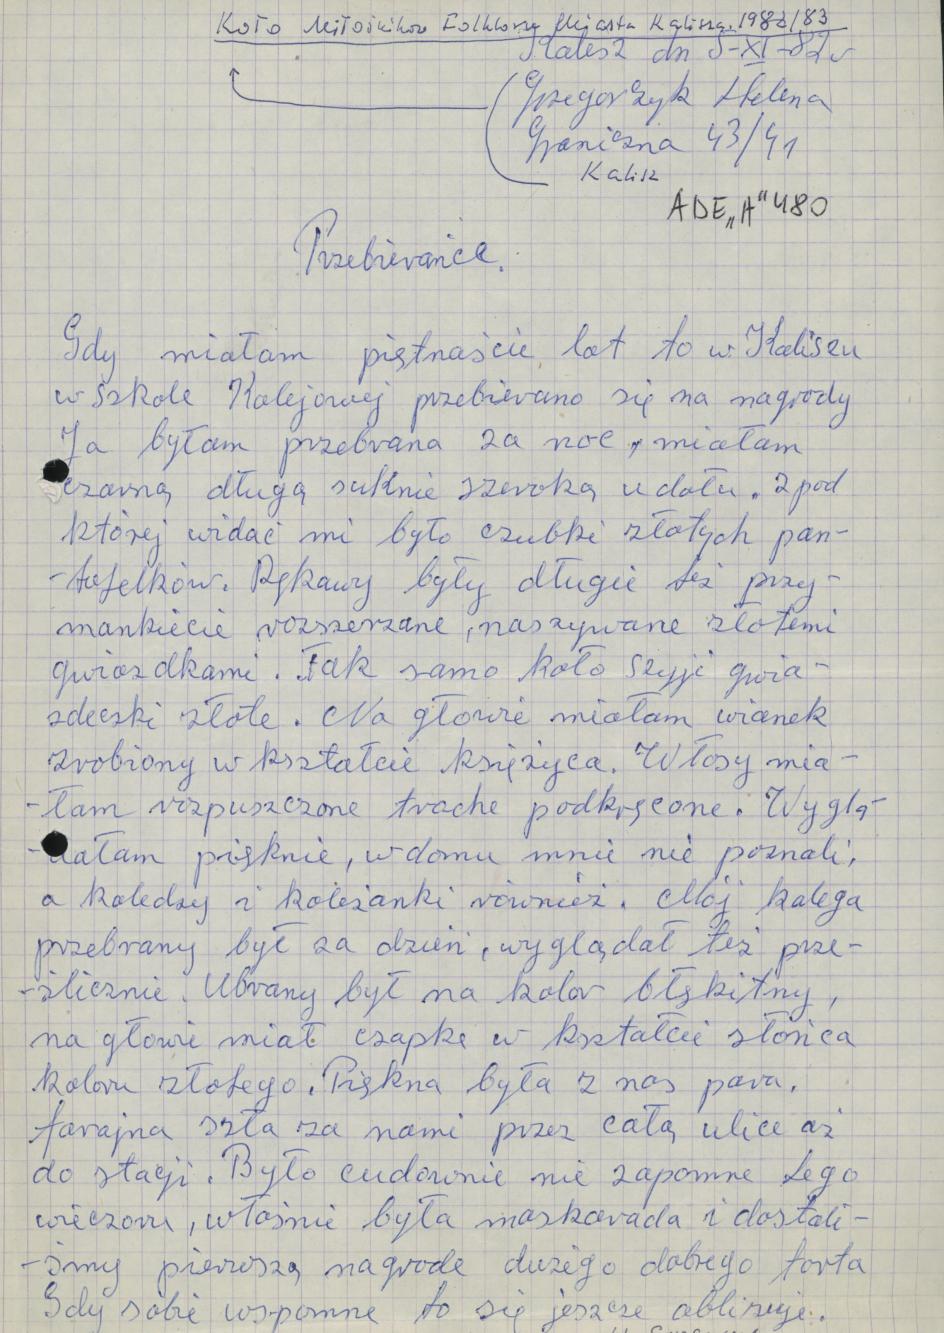 Koło Miłośników Folkloru Miasta Kalisza. 1982/83
Kalisz dn 5-XI-82r
Grzegorzyk Helena
Graniczna 43/41
Kalisz
ADE „A" 480
Przebierańce.
Gdy miałam piętnaście lat to w Kaliszu
w Szkole Kolejowej przebierano się na nagrody
Ja byłam przebrana za noc, miałam
czarną długą suknie szeroką u dołu. Z pod
której widać mi było czubki złotych pan-
-tofelków. Rękawy były długie też przy-
mankiecie rozszerzane, naszywane złotemi
gwiazdkami. Tak samo koło szyji gwia-
zdeczki złote. Na głowie miałam wianek
zrobiony w kształcie księżyca. Włosy mia-
-łam rozpuszczone troche podkręcone. Wyglą-
-dałam pięknie, w domu mnie nie poznali,
a koledzy i koleżanki również. Mój kolega
przebrany był za dzień, wyglądał też prze-
-ślicznie. Ubrany był na kolor błękitny,
na głowie miał czapkę w kształcie słońca
koloru złotego. Piękna była z nas para.
farajna szła za nami przez całą ulice aż
do stacji. Było cudownie nie zapomne tego
wieczoru, właśnie była maskarada i dostali-
-śmy pierwszą nagrode dużego dobrego torta
Gdy sobie wspomne to się jeszcze oblizuje.